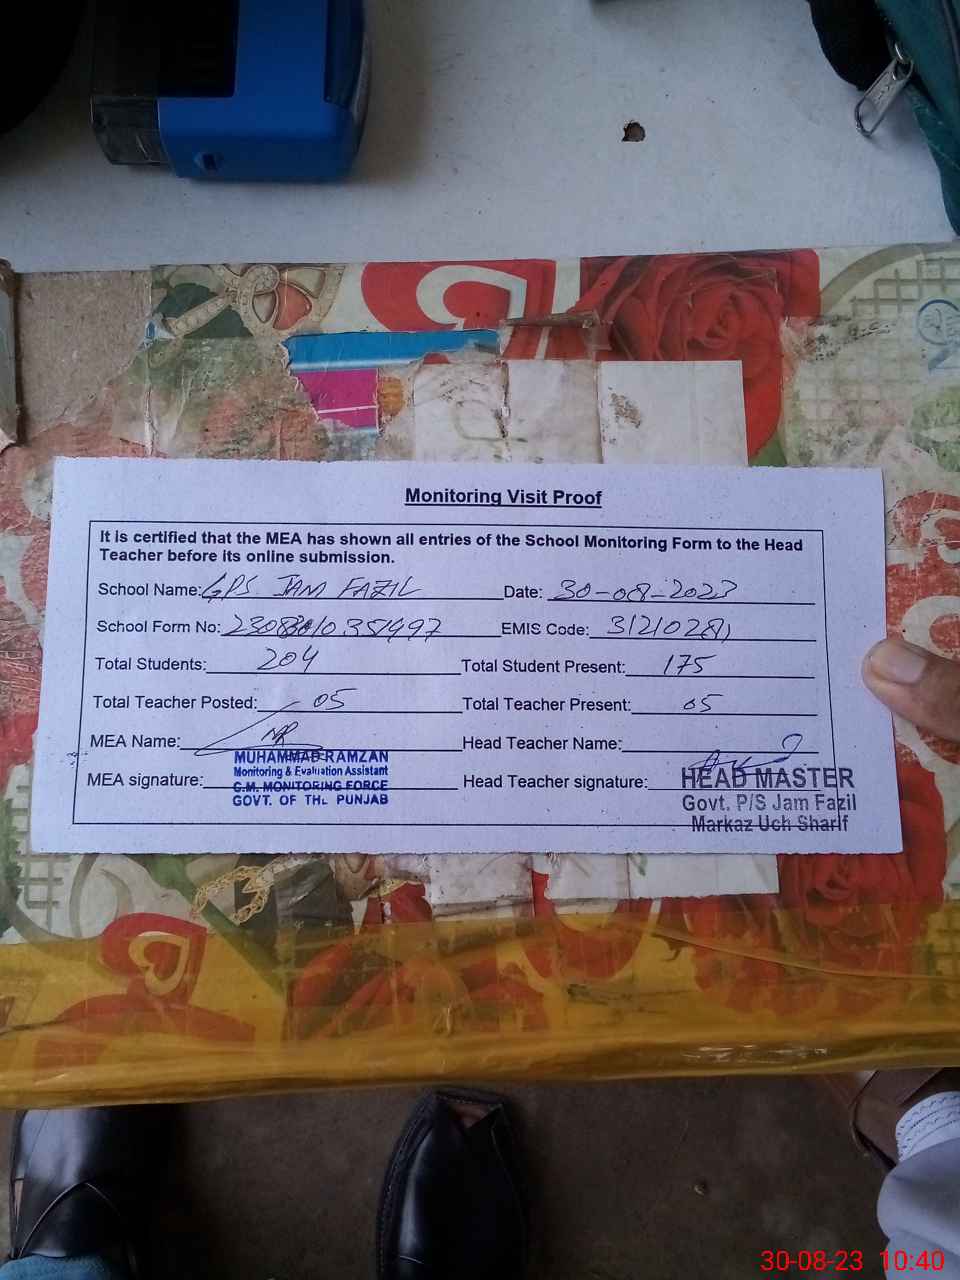 Monitoring Visit Proof
It is certified that the MEA has shown all entries of the School Monitoring Form to the Head
Teacher before its online submission.
School Name: GPS JAM FAZIL Date: 30-08-2023
School Form No: EMIS Code:
Total Students: 204 Total Student Present: 175
Total Teacher Posted: 05 Total Teacher Present: 05
MEA Name: MR Head Teacher Name:
MEA signature: Head Teacher signature:
MUHAMMAD RAMZAN
Monitoring & Evaluation Assistant
C.M. MONITORING FORCE
GOVT. OF THE PUNJAB
HEAD MASTER
Govt. P/S Jam Fazil
Markaz Uch Sharif
30-08-23 10:40